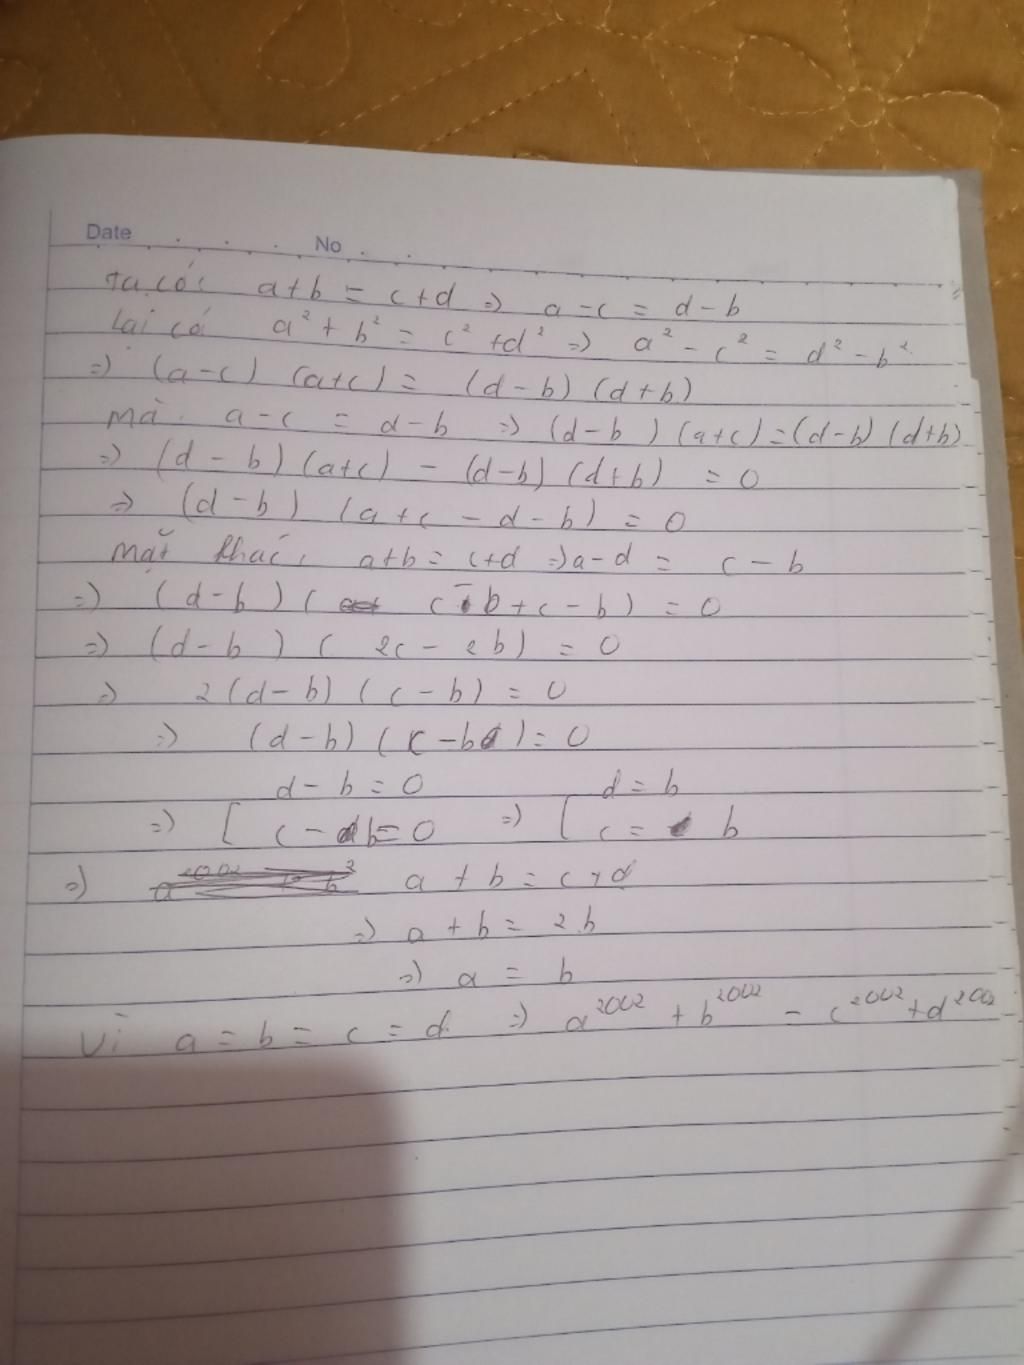 Date No
Ta có: a+b = c+d => a-c = d-b
lại có a² + b² = c² +d² => a² - c² = d² - b²
=> (a-c) (a+c) = (d-b) (d+b)
mà a-c = d-b => (d-b) (a+c)=(d-b) (d+b)
=> (d-b) (a+c) - (d-b) (d+b) = 0
=> (d-b) (a+c-d-b) = 0
mặt khác, a+b = c+d => a-d = c-b
=> (d-b) ( c-b+c-b) = 0
=> (d-b) ( 2c-2b) = 0
=> 2(d-b) (c-b) = 0
=> (d-b) (c-b) = 0
d-b = 0 d = b
=> [ c-b = 0 => [ c = b
=> a+b = c+d
=> a+b = 2b
=> a = b
Vì a = b = c = d => a²⁰⁰² + b²⁰⁰² = c²⁰⁰² + d²⁰⁰²